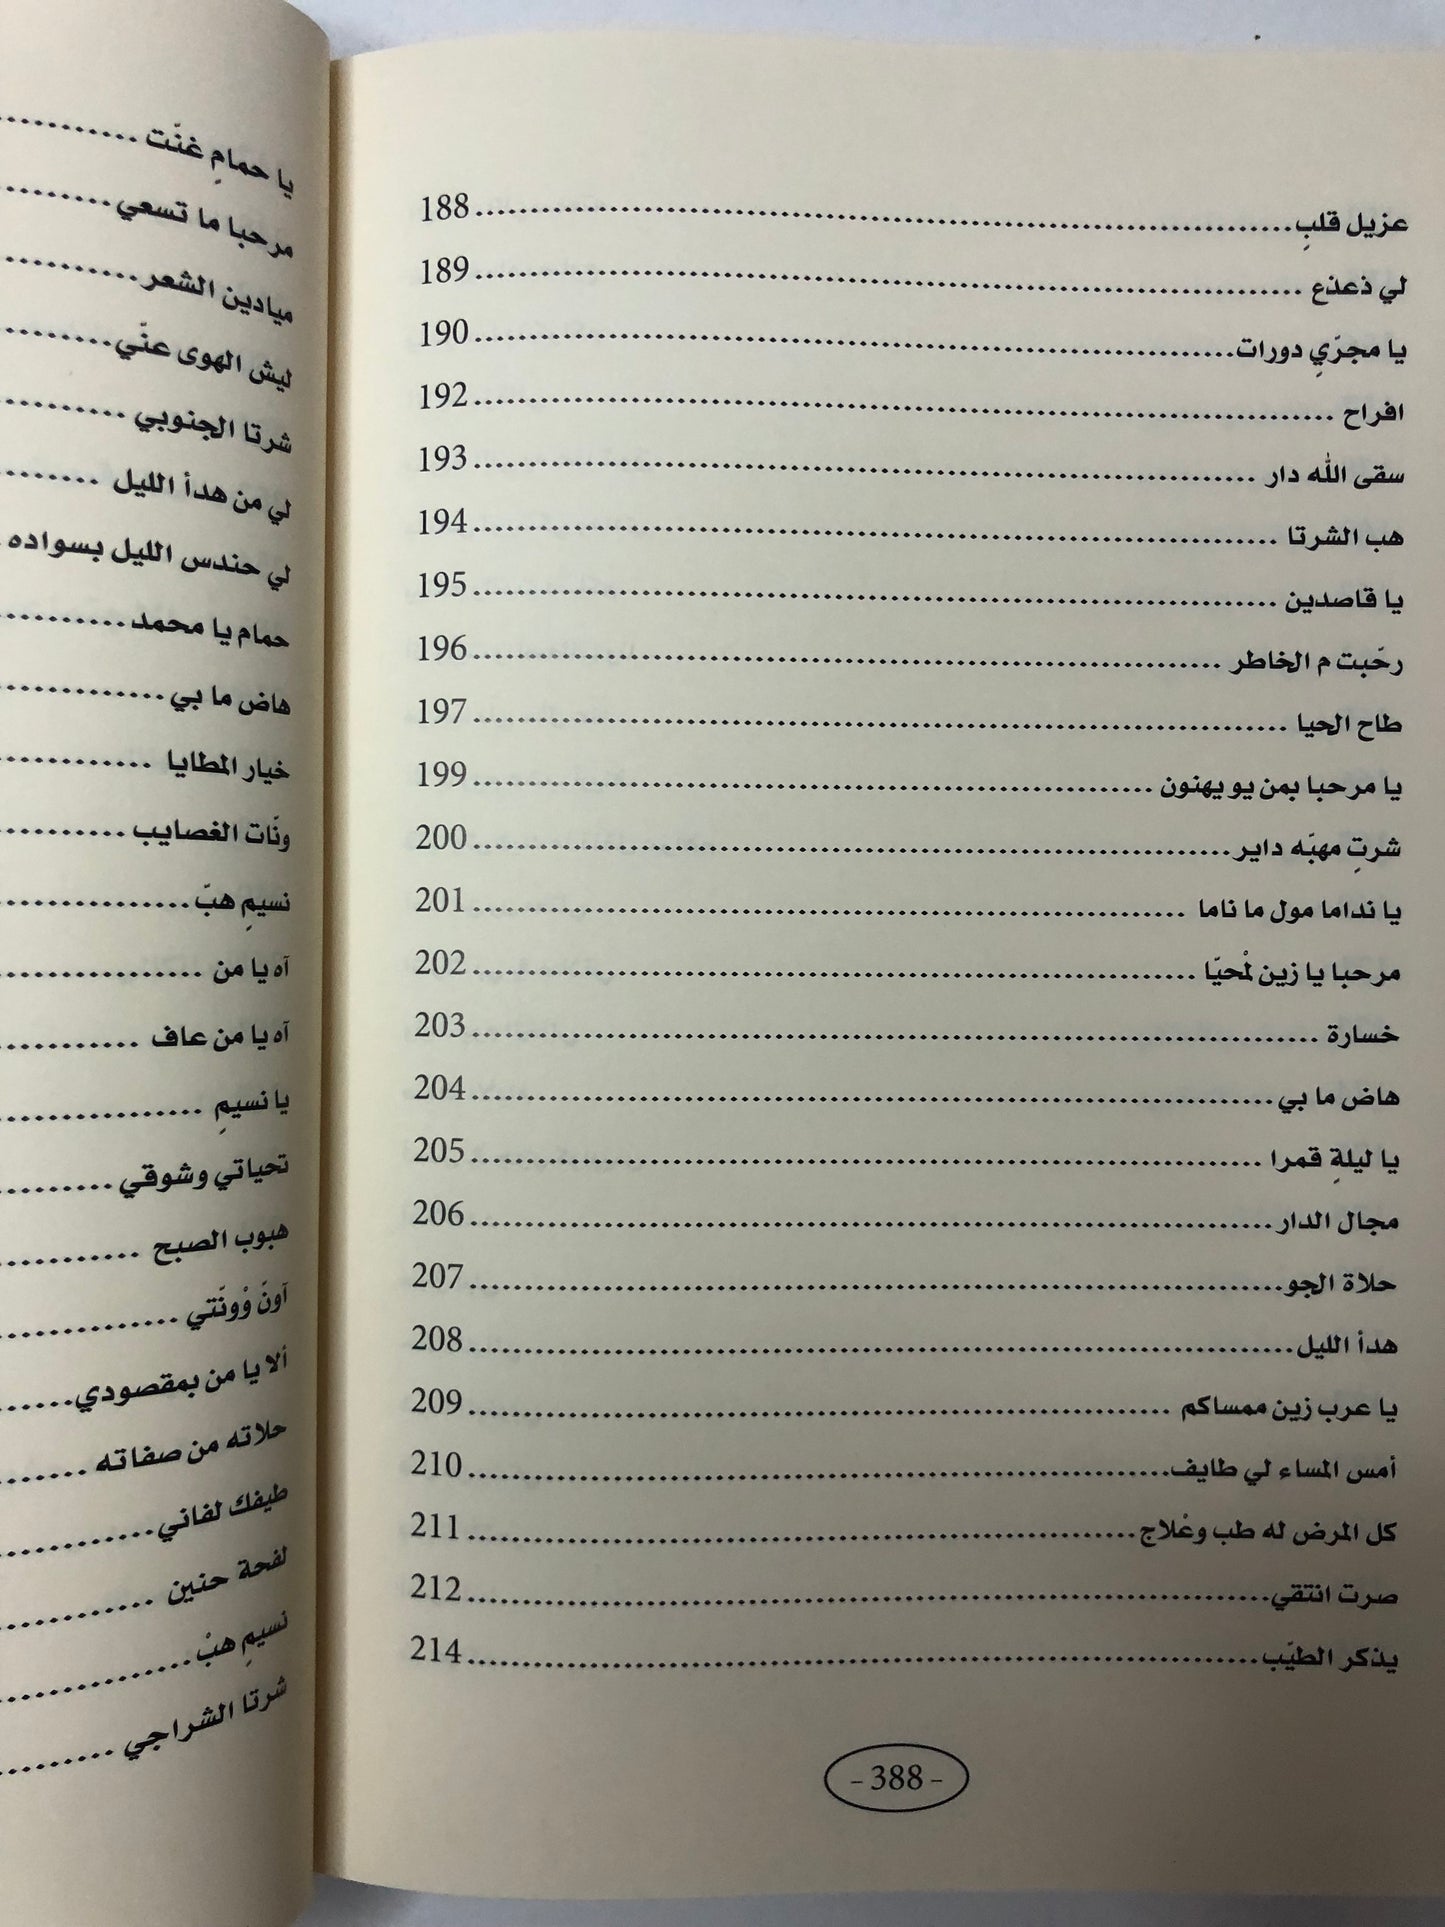 عزيل قلبِ 188
لي ذعذع 189
يا مجرّيِ دورات 190
افراح 192
سقى الله دار 193
هب الشرتا 194
يا قاصدين 195
رحّبت م الخاطر 196
طاح الحيا 197
يا مرحبا بمن يو يهنون 199
شرتِ مهبّه داير 200
يا نداما مول ما ناما 201
مرحبا يا زين لمْحيّا 202
خسارة 203
هاض ما بي 204
يا ليلةِ قمرا 205
مجال الدار 206
حلاة الجو 207
هدأ الليل 208
يا عرب زين ممساكم 209
أمس المساء لي طايف 210
كل المرض له طب وعْلاج 211
صرت انتقي 212
يذكر الطيّب 214
- 388 -
يا حمامِ غنّت
مرحبا ما تسعي
ميادين الشعر
ليش الهوى عنّي
شرتا الجنوبي
لي من هدأ الليل
لي حندس الليل بسواده
حمام يا محمد
هاض ما بي
خيار المطايا
ونّات الغصايب
نسيمِ هبّ
آه يا من
آه يا من عاف
يا نسيمِ
تحياتي وشوقي
هبوب الصبح
آونّ وْونّتي
ألا يا من بمقصودي
حلاته من صفاته
طيفك لفاني
لفحة حنين
نسيمِ هبْ
شرتا الشراجي